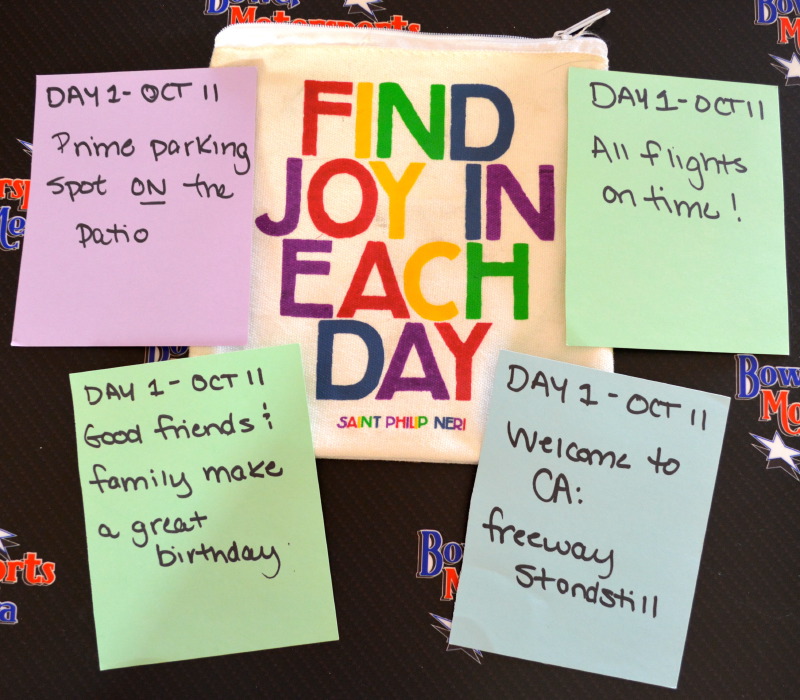 Bower
Motorsports
DAY 1 - OCT 11
Prime parking
spot ON the
patio
FIND
JOY IN
EACH
DAY
SAINT PHILIP NERI
DAY 1 - OCT 11
All flights
on time!
DAY 1 - OCT 11
Good friends &
family make
a great
birthday.
DAY 1 - OCT 11
Welcome to
CA:
freeway
Stondstill